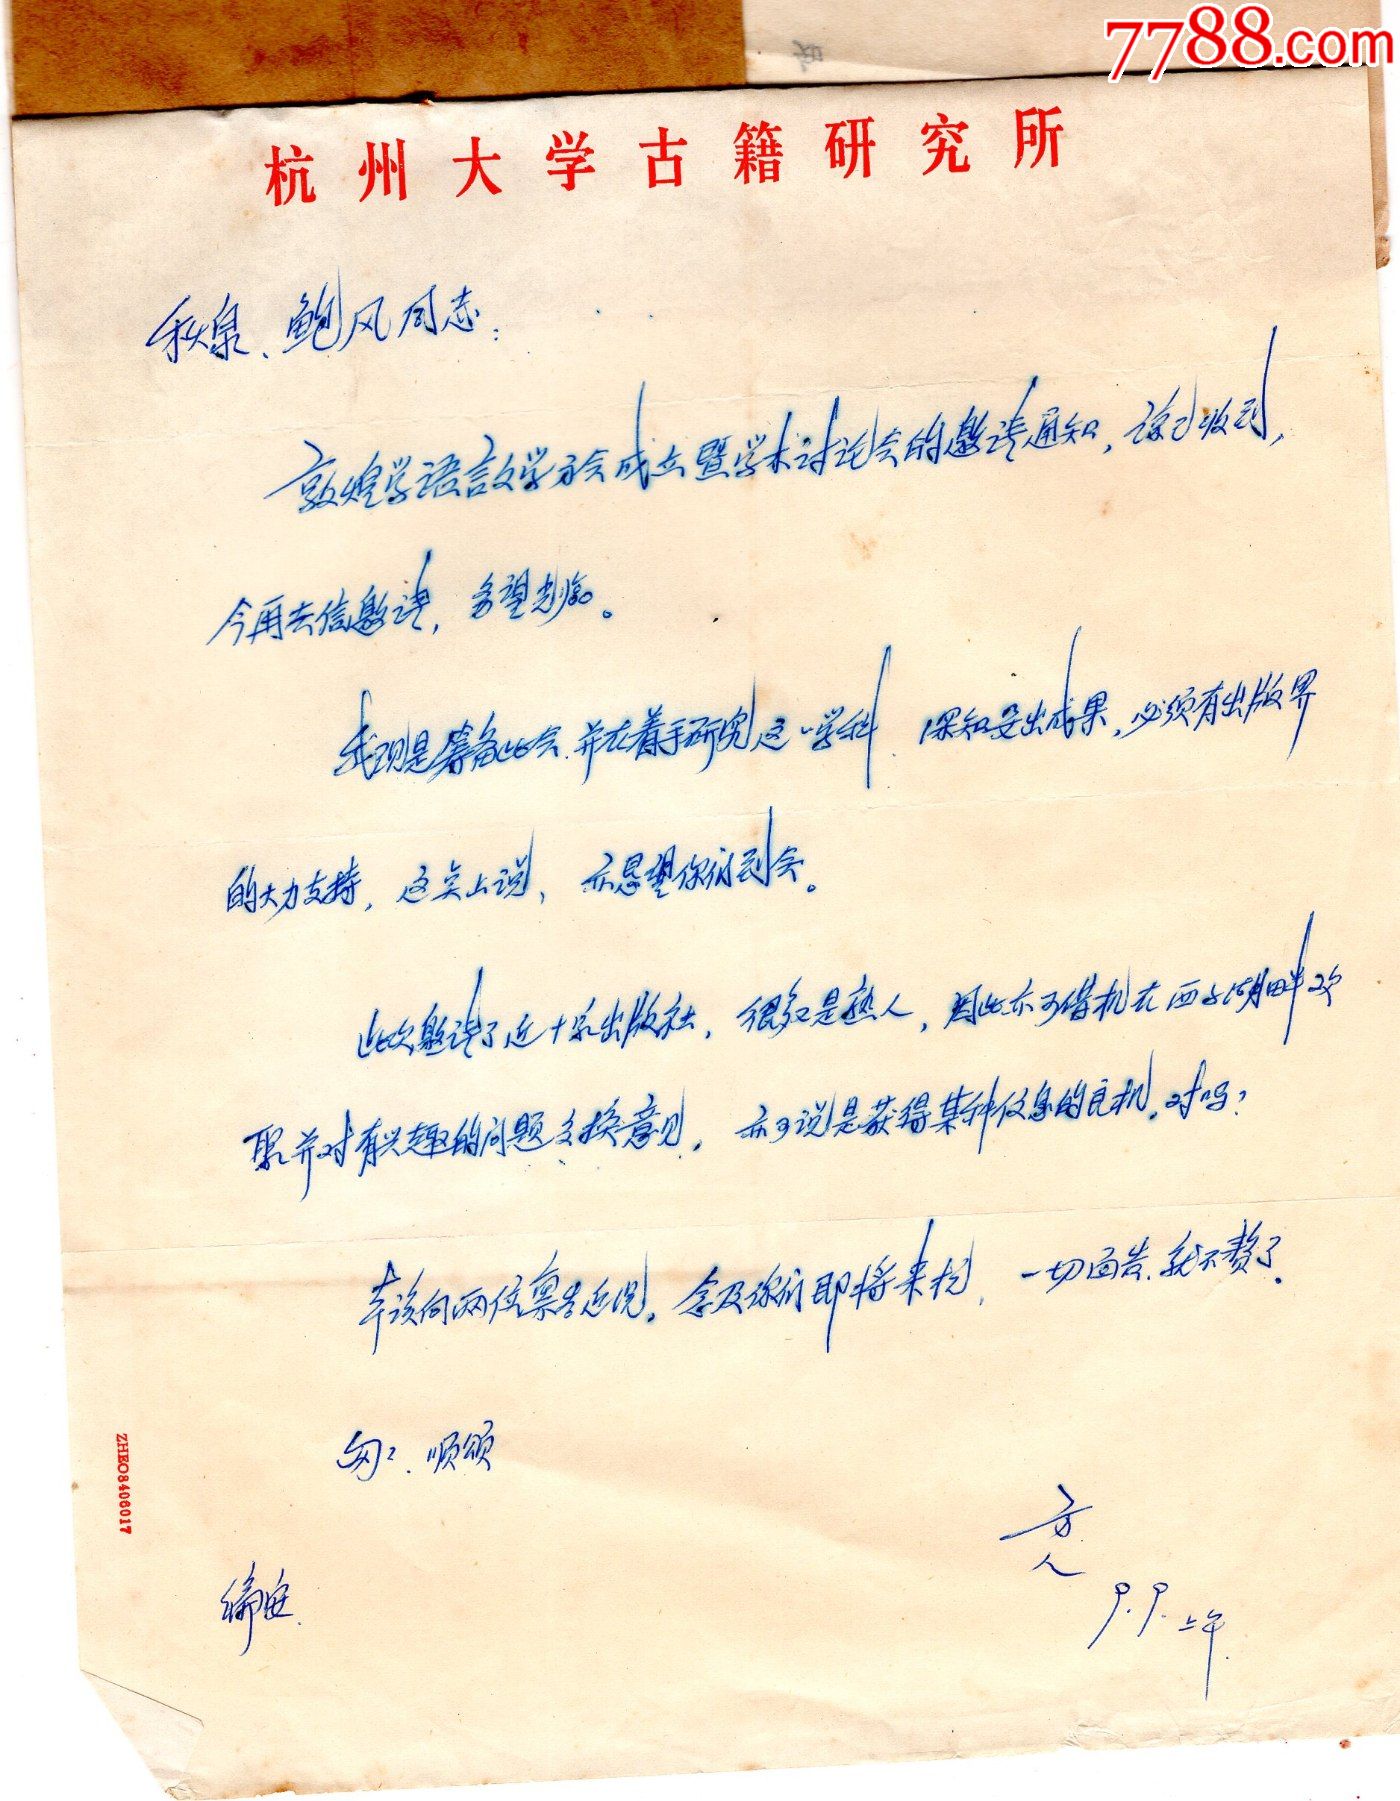 7788.com
杭州大学古籍研究所
秋泉、鲍风同志：
敦煌学语言文学分会成立暨学术讨论会的邀请通知，谅已收到，
今再去信邀请，希望光临。
我现是筹备此会，并在着手研究这一学科，深知要出成果，必须有出版界
的大力支持，这点上说，亦恳望你们到会。
此次邀请了近十家出版社，很多是熟人，因此亦可借机在西子湖畔欢
聚并对有兴趣的问题交换意见，亦可说是获得某种信息的良机，对吗？
本该向两位禀告近况，念及你们即将来杭，一切面告，就不赘了。
匆匆，顺颂
编安
9.9.上午
ZHEO8406017